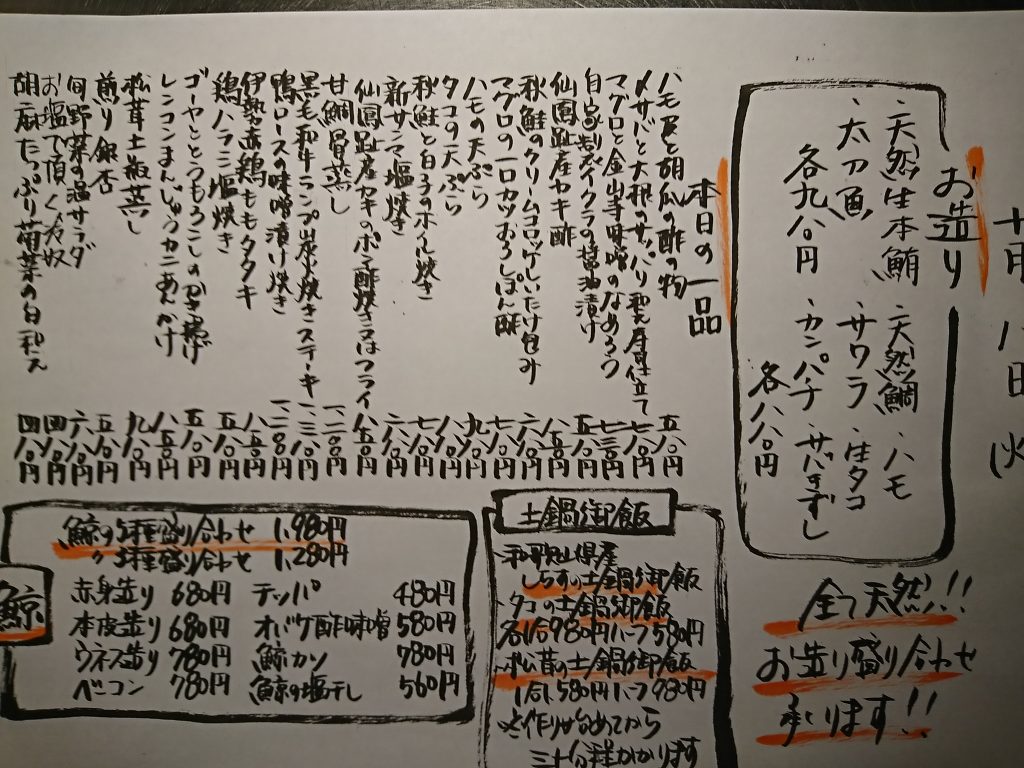 お造り
・天然生本鮪
・太刀魚
各九八〇円
・天然鯛
・ハモ
・サワラ
・生タコ
・カンパチ
・サバきずし
各八八〇円
全て天然!!
お造り盛り合わせ
承ります!!
本日の一品
ハモ皮と胡瓜の酢の物 五八〇円
〆サバと大根のサッパリ和え 七八〇円
マグロと金山寺味噌のなめろう 七三〇円
自家製イクラの醤油漬け 五八〇円
仙鳳趾産カキ酢 八五〇円
秋鮭のクリームコロッケしいたけ包み 六八〇円
マグロの一口カツおろしぽん酢 七八〇円
ハモの天ぷら 九八〇円
タコの天ぷら 八八〇円
秋鮭と白子のホイル焼き 七八〇円
新サンマ塩焼き 六八〇円
仙鳳趾産カキのポン酢焼き又はフライ 八五〇円
甘鯛骨蒸し
黒毛和牛ランプ山椒焼きステーキ
鴨ロースの味噌漬け焼き
伊勢赤鶏ももタタキ 八八〇円
鶏ハラミ塩焼き 五八〇円
ゴーヤととうもろこしのかき揚げ 五八〇円
レンコンまんじゅうカニあんかけ 八五〇円
松茸土瓶蒸し 九八〇円
煎り銀杏 五八〇円
旬野菜の温サラダ 六八〇円
お塩で頂く冷奴 四八〇円
胡麻たっぷり菊菜の白和え 四八〇円
土鍋御飯
・和歌山県産
しらすの土鍋御飯
・タコの土鍋御飯
各1合980円ハーフ580円
・松茸の土鍋御飯
1合1,580円ハーフ980円
※作り始めてから
三十分程かかります
鯨
鯨の5種盛り合わせ 1,980円
〃 3種盛り合わせ 1,280円
赤身造り 680円 テッパ 480円
本皮造り 680円 オバケ酢味噌 580円
ウネス造り 780円 鯨カツ 780円
ベーコン 780円 鯨の塩干し 560円